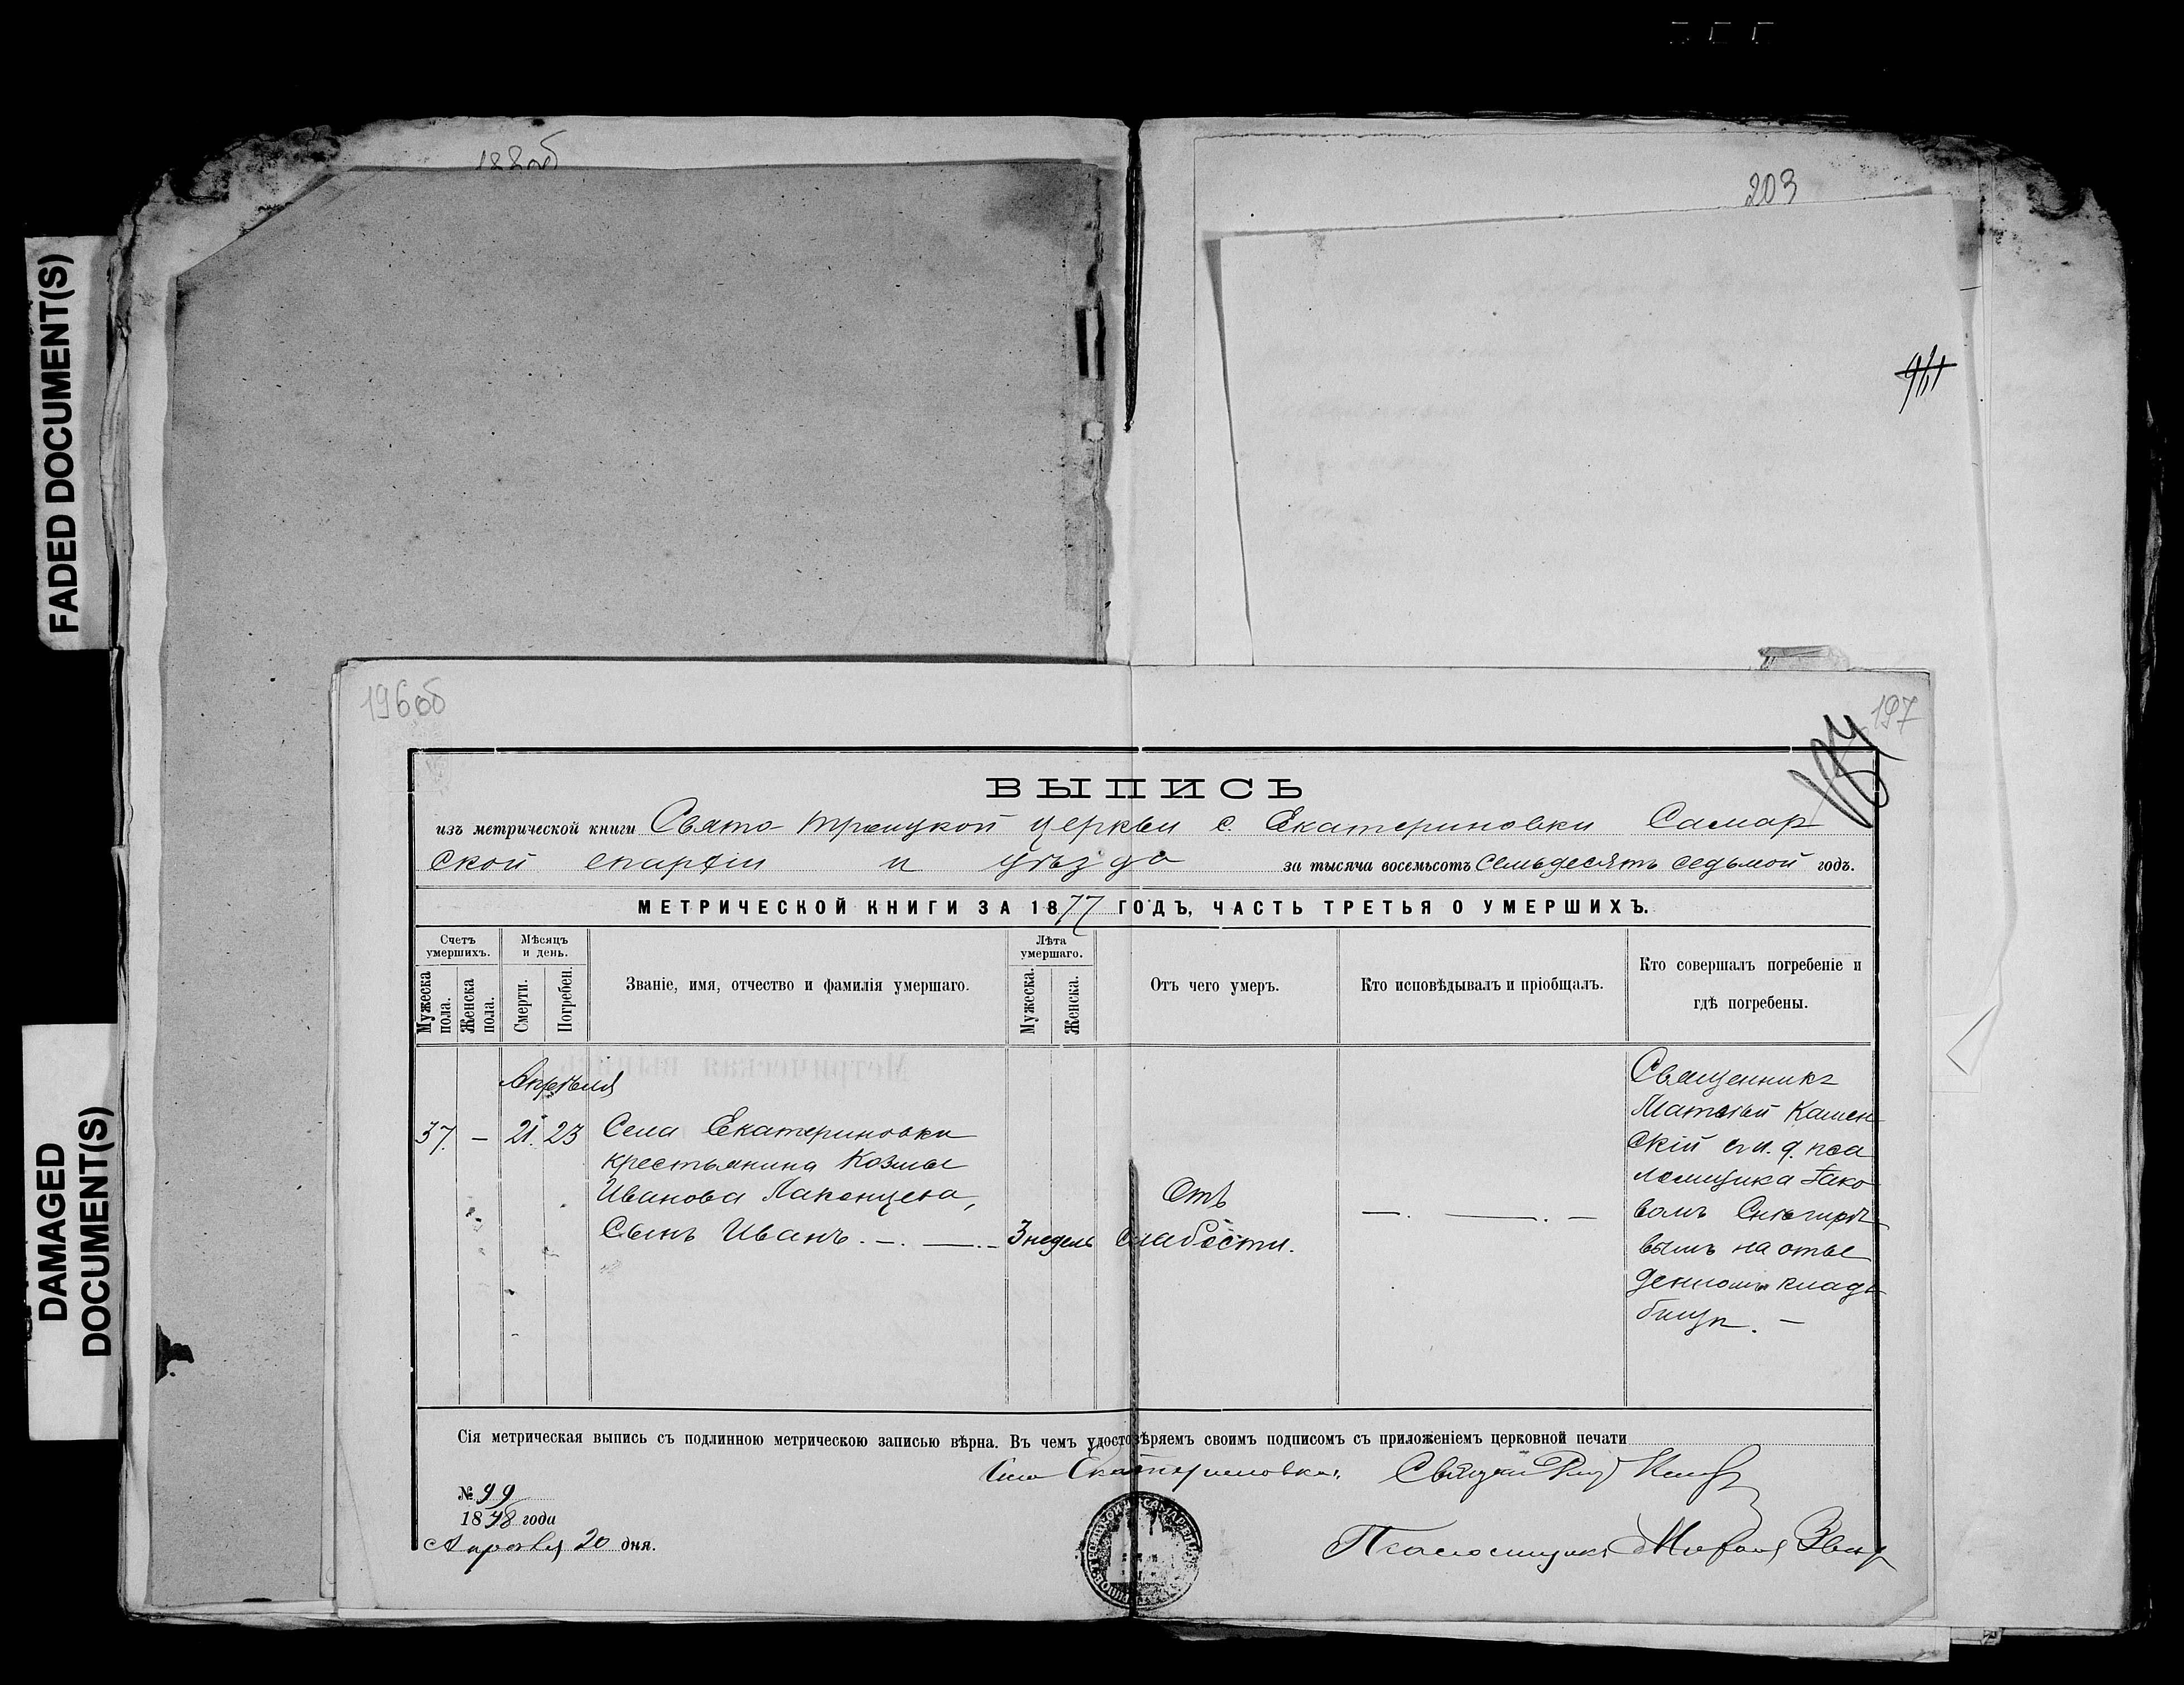 188об
203
FADED DOCUMENT(S)
DAMAGED
DOCUMENT(S)
196об
197
ВЫПИСЬ
изъ метрической книги Свято-Троицкой церкви с. Екатериновки Самар
ской епархіи и уѣзда за тысяча восемьсотъ семьдесятъ седьмой годъ.
МЕТРИЧЕСКОЙ КНИГИ ЗА 1877 ГОДЪ, ЧАСТЬ ТРЕТЬЯ О УМЕРШИХЪ.
Счетъ умершихъ.
Мужеска пола.
Женска пола.
Мѣсяцъ и день.
Смерти.
Погребен.
Званіе, имя, отчество и фамилія умершаго.
Лѣта умершаго.
Мужеска.
Женска.
Отъ чего умеръ.
Кто исповѣдывалъ и пріобщалъ.
Кто совершалъ погребеніе и
гдѣ погребены.
Апрѣля
37. — 21. 23
Села Екатериновки
крестьянина Козмы
Иванова Лаконцева,
Сынъ Иванъ. —. —. —
3 недель
Отъ
слабости.
—. —. —
Священникъ
Матвѣй Камен
скій съ и. д. пса
ломщика Іако
вомъ Снегирѣ
вымъ на отве
денномъ кладъ
бищѣ. —
Сія метрическая выпись съ подлинною метрическою записью вѣрна. Въ чемъ удостовѣряемъ своимъ подписомъ съ приложеніемъ церковной печати
Села Екатериновки,
№ 99
1898 года
Апрѣля 20 дня.
Псаломщикъ